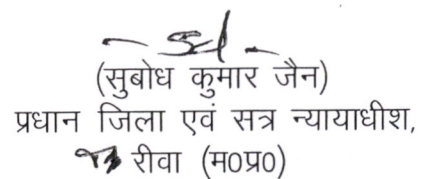 (सुबोध कुमार जैन)
प्रधान जिला एवं सत्र न्यायाधीश,
रीवा (म0प्र0)